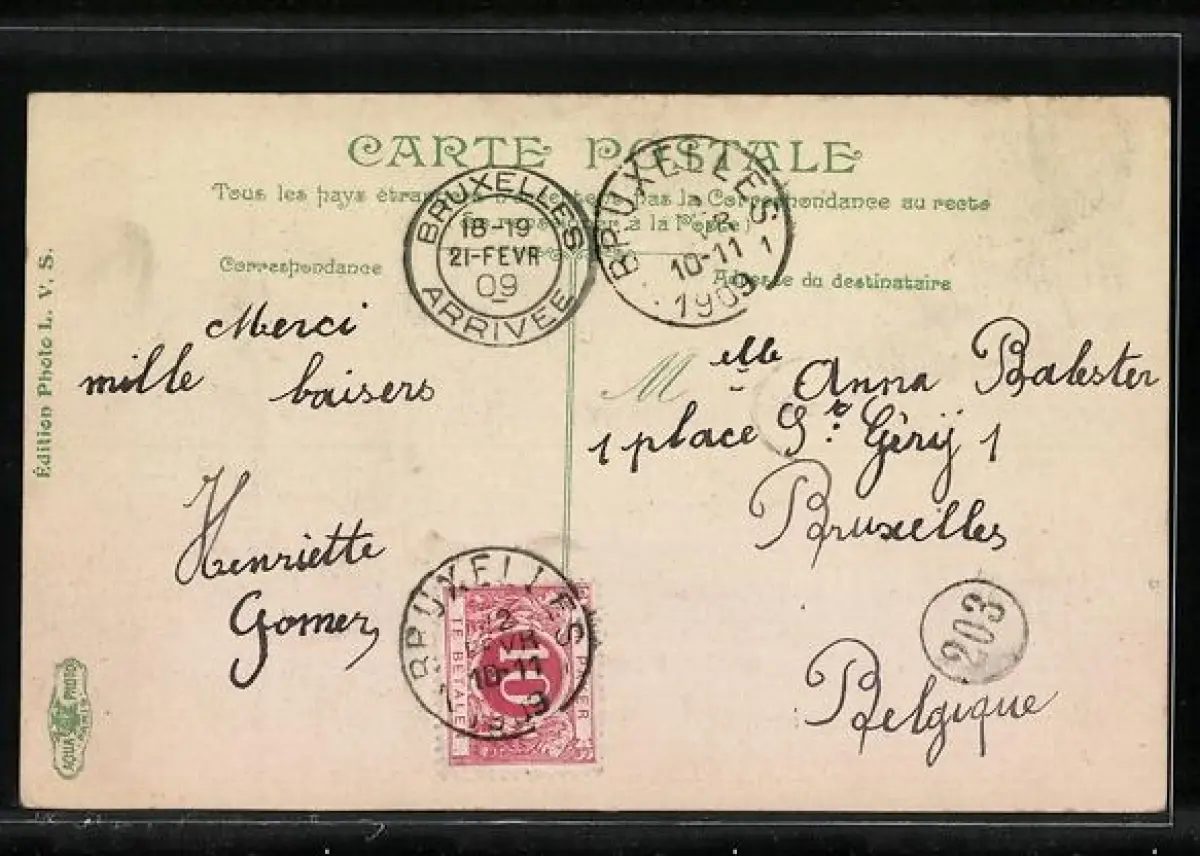 CARTE POSTALE
Tous les pays étrangers pas la Correspondance au recto
à la Poste)
Correspondance
Adresse du destinataire
BRUXELLES
18-19
21-FEVR
09
ARRIVEE
BRUXELLES
10-11
1909
Édition Photo L. V. S.
Merci
mille baisers
Henriette
Gomez
Melle Anna Balester
1 place St: Géry 1
Bruxelles
Belgique
203
BRUXELLES
10-11
A PAYER
10
TE BETALEN
AQUA PHOTO